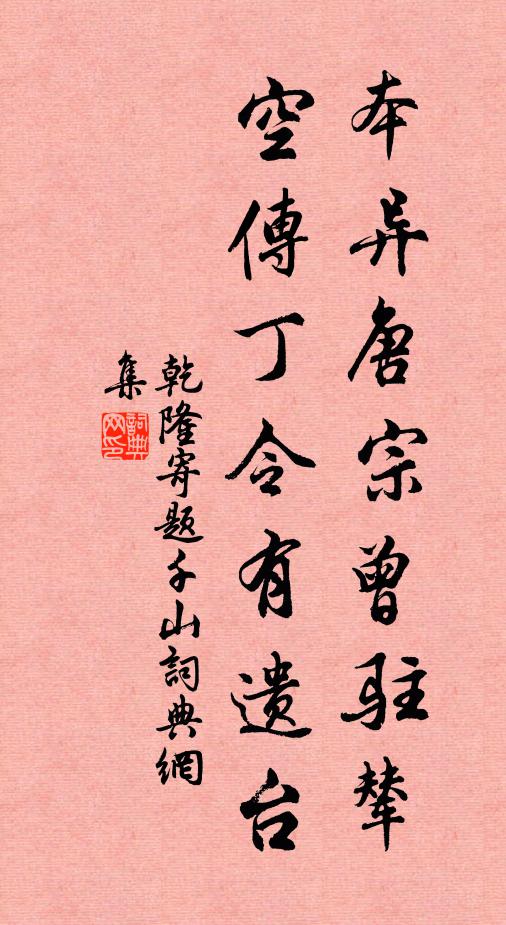 本异唐宗曾驻辇
空傳丁令有遗台
乾隆寄题千山詞典網
集
詞典网印